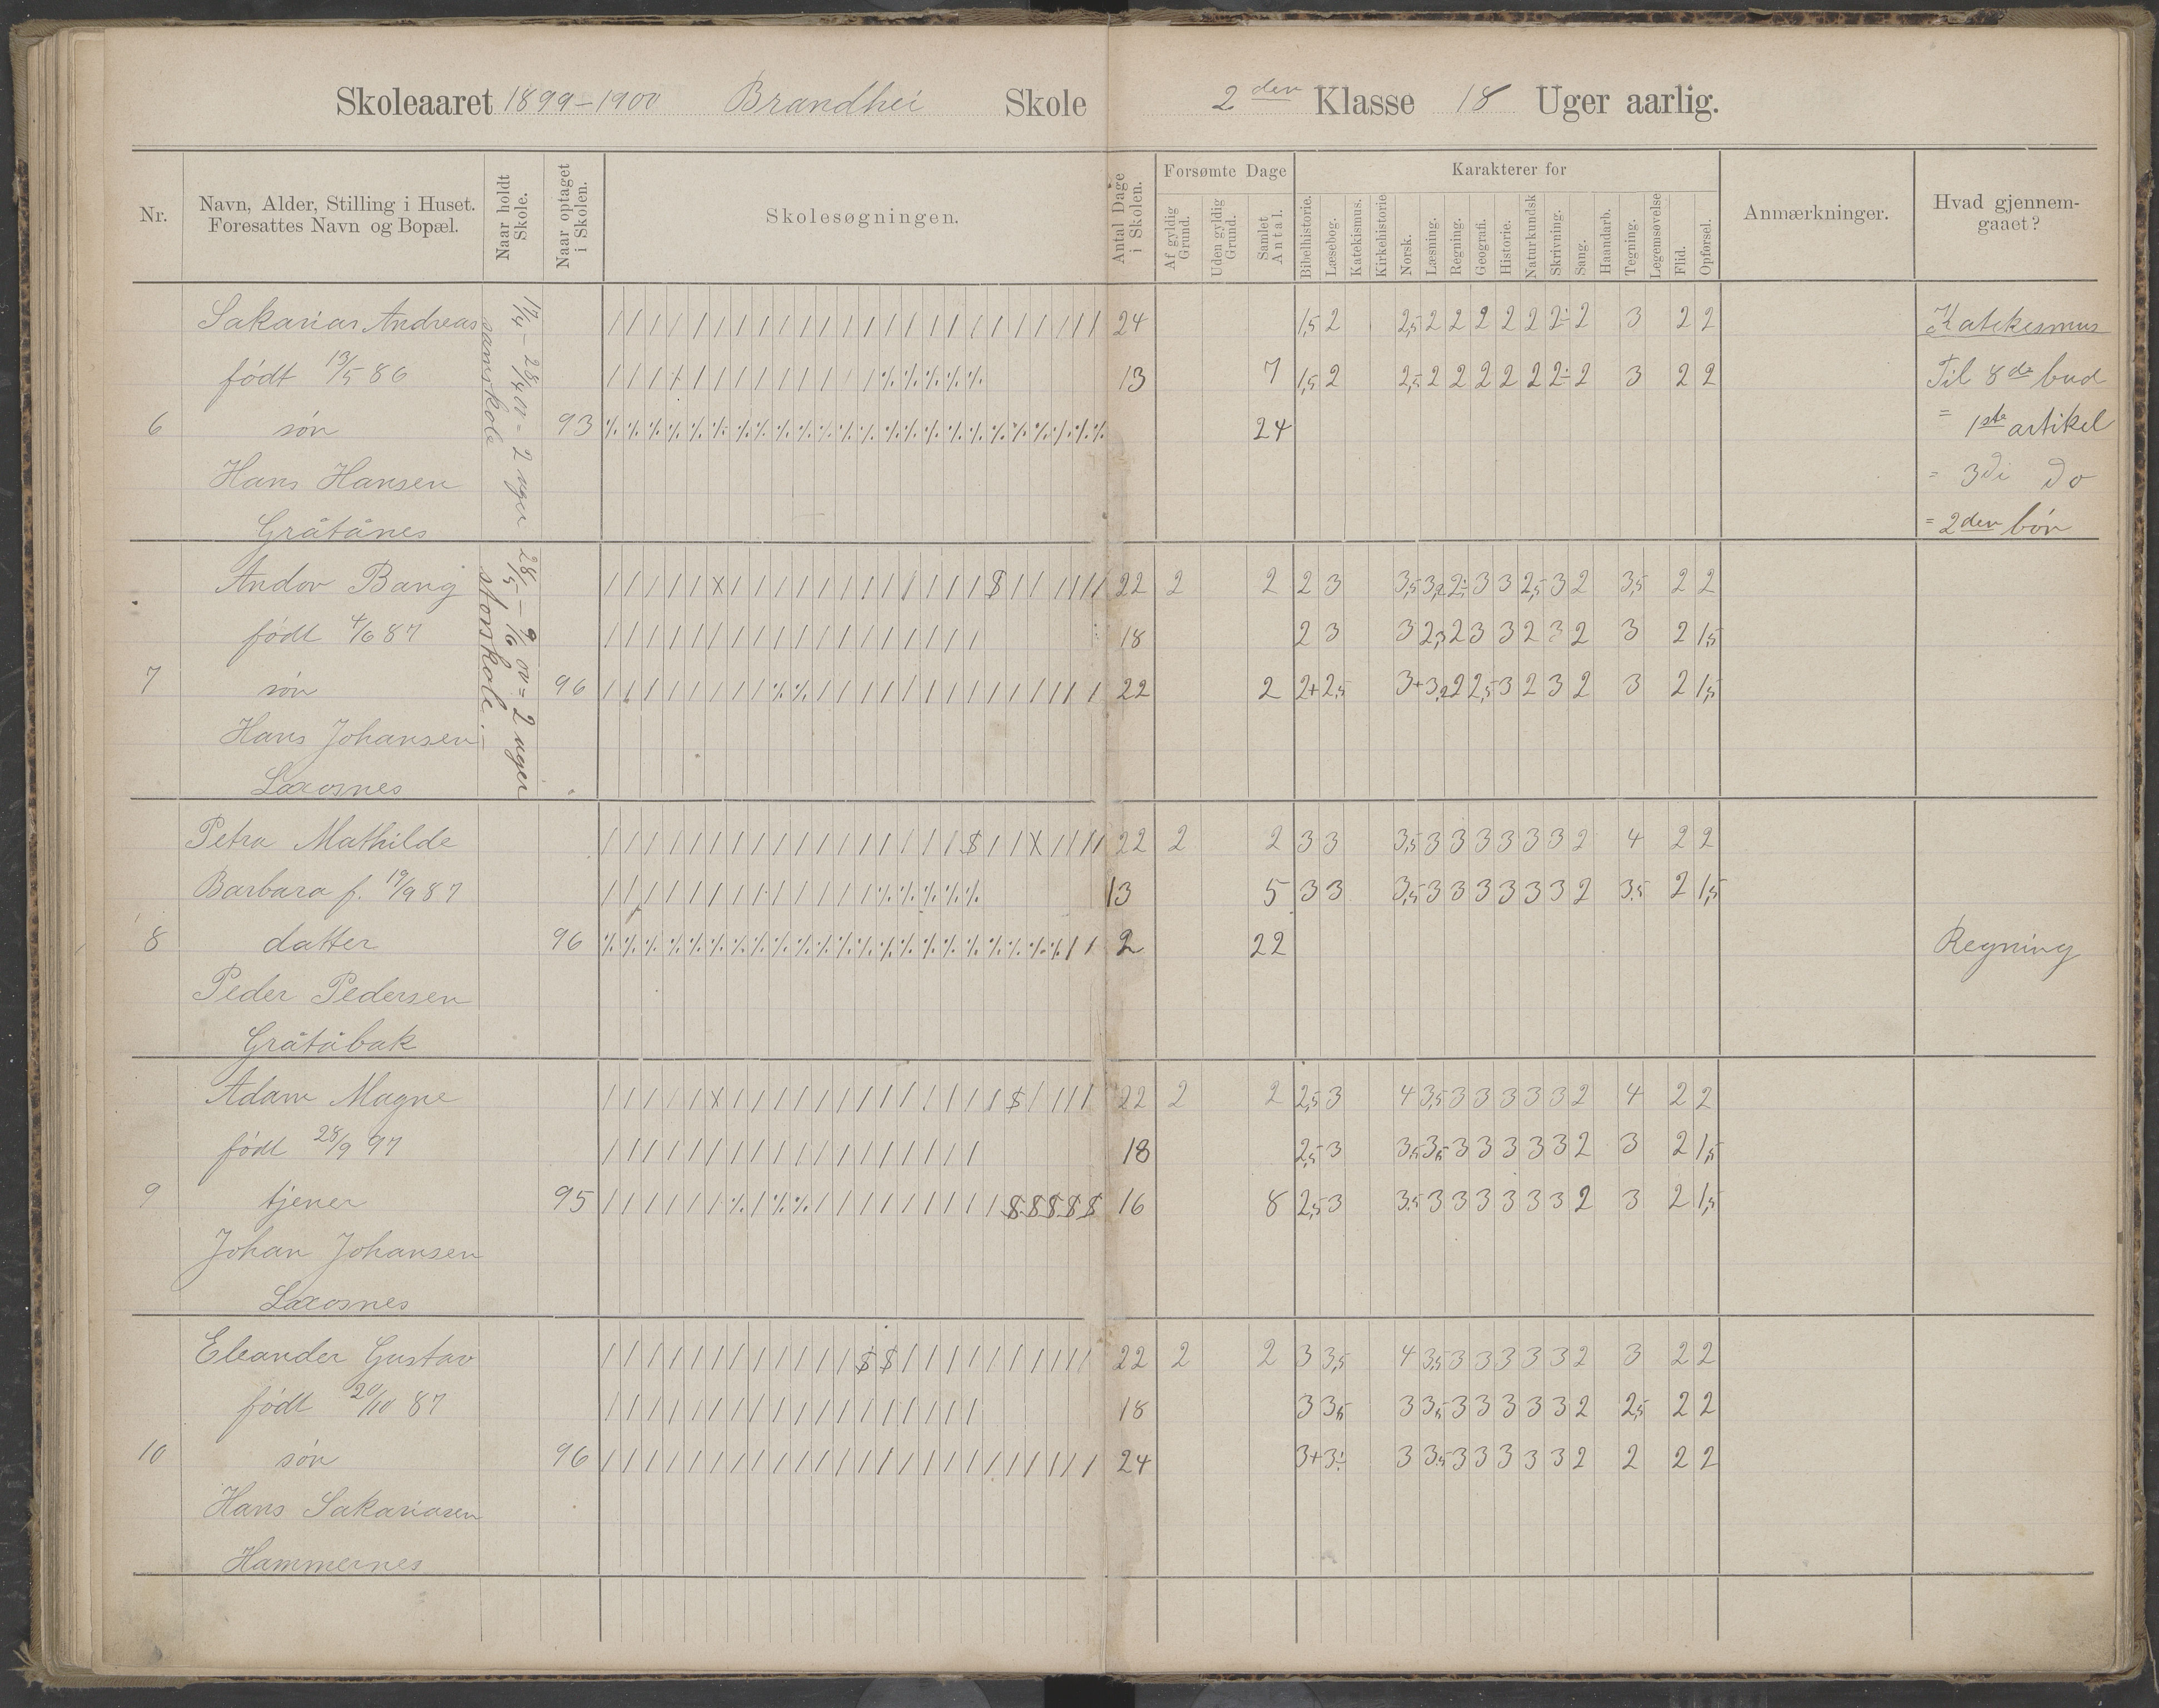 Skoleaaret 1899-1900 Brandhei Skole 2den Klasse 18 Uger aarlig.
Nr. Navn, Alder, Stilling i Huset. Foresattes Navn og Bopæl. Naar holdt Skole. Naar optaget i Skolen. Skolesøgningen. Antal Dage i Skolen. Forsømte Dage Af gyldig Grund. Uden gyldig Grund. Samlet Antal. Karakterer for Bibelhistorie. Læsebog. Katekismus. Kirkehistorie Norsk. Læsning. Regning. Geografi. Historie. Naturkundsk Skrivning. Sang. Haandarb. Tegning. Legemsøvelse Flid. Opførsel. Anmærkninger. Hvad gjennemgaaet?
Sakarias Andreas 24 1,5 2 2,5 2 2 2 2 2 2÷ 2 3 2 2 Katekesmus
født 13/5 86 13 7 1,5 2 2,5 2 2 2 2 2 2÷ 2 3 2 2 Til 8de bud
6 søn 93 24 = 1ste artikel
Hans Hansen = 3di do
Gråtånes = 2den bøn
28/4 00 = 2 uger
28/5 - 9/6 00 = 2 uger
storskole.
Andor Bang 22 2 2 2 3 3,5 3,2 2÷ 3 3 2,5 3 2 3,5 2 2
født 4/6 87 18 2 3 3 2,3 2 3 3 2 3 2 3 2 1,5
7 søn 96 22 2 2+ 2,5 3+ 3,2 2 2,5 3 2 3 2 3 2 1,5
Hans Johansen
Laxosnes
Petra Mathilde 22 2 2 3 3 3,5 3 3 3 3 3 3 2 4 2 2
Barbara f. 19/9 87 13 5 3 3 3,5 3 3 3 3 3 3 2 3,5 2 1,5
8 datter 96 2 22 Regning
Peder Pedersen
Gråtåbak
Adam Magne 22 2 2 2,5 3 4 3,5 3 3 3 3 3 2 4 2 2
født 28/9 97 18 2,5 3 3,5 3,5 3 3 3 3 3 2 3 2 1,5
9 tjener 95 16 8 2,5 3 3,5 3 3 3 3 3 3 2 3 2 1,5
Johan Johansen
Laxosnes
Eleander Gustav 22 2 2 3 3,5 4 3,5 3 3 3 3 3 2 3 2 2
født 20/10 87 18 3 3,5 3 3,5 3 3 3 3 3 2 2,5 2 2
10 søn 96 24 3+ 3÷ 3 3,5 3 3 3 3 3 2 2 2 2
Hans Sakariasen
Hammernes